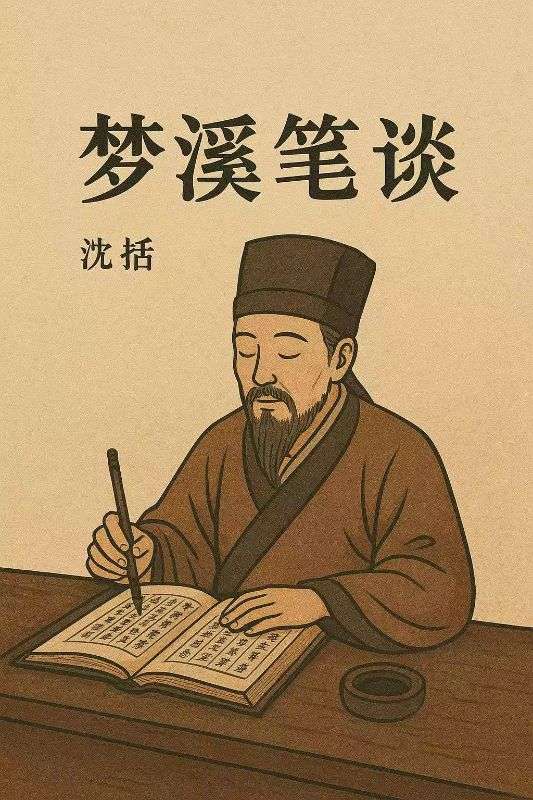 梦溪笔谈
沈括